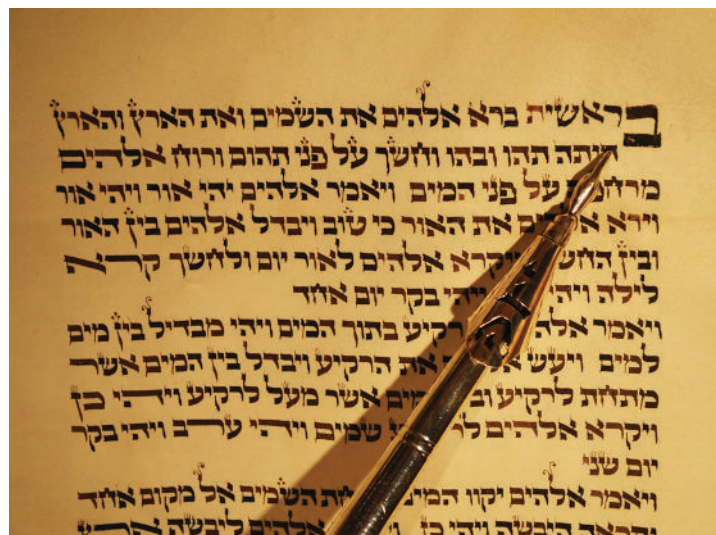 בראשית ברא אלהים את השמים ואת הארץ והארץ
היתה תהו ובהו וחשך על פני תהום ורוח אלהים
מרחפת על פני המים ויאמר אלהים יהי אור ויהי אור
וירא אלהים את האור כי טוב ויבדל אלהים בין האור
ובין החשך ויקרא אלהים לאור יום ולחשך קרא
לילה ויהי ויהי בקר יום אחד
ויאמר אלהים רקיע בתוך המים ויהי מבדיל בין מים
למים ויעש את הרקיע ויבדל בין המים אשר
מתחת לרקיע ובין המים אשר מעל לרקיע ויהי כן
ויקרא אלהים שמים ויהי ערב ויהי בקר
יום שני
ויאמר אלהים יקוו המים מתחת השמים אל מקום אחד
ותראה היבשה ויהי כן אלהים ליבשה ארץ